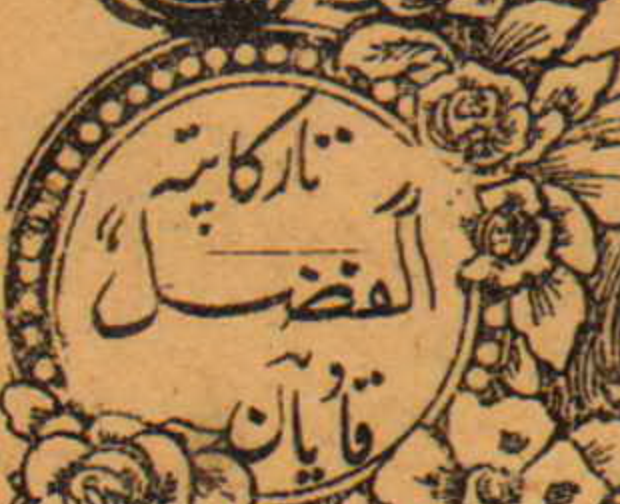 تار کا پتہ
"الفضل"
قادیان